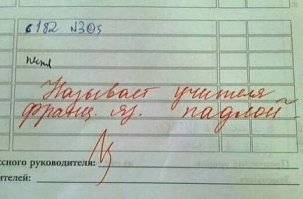 6 182 №305
Называет учителя
франц. яз. падлой
ссного руководителя:
ителей: